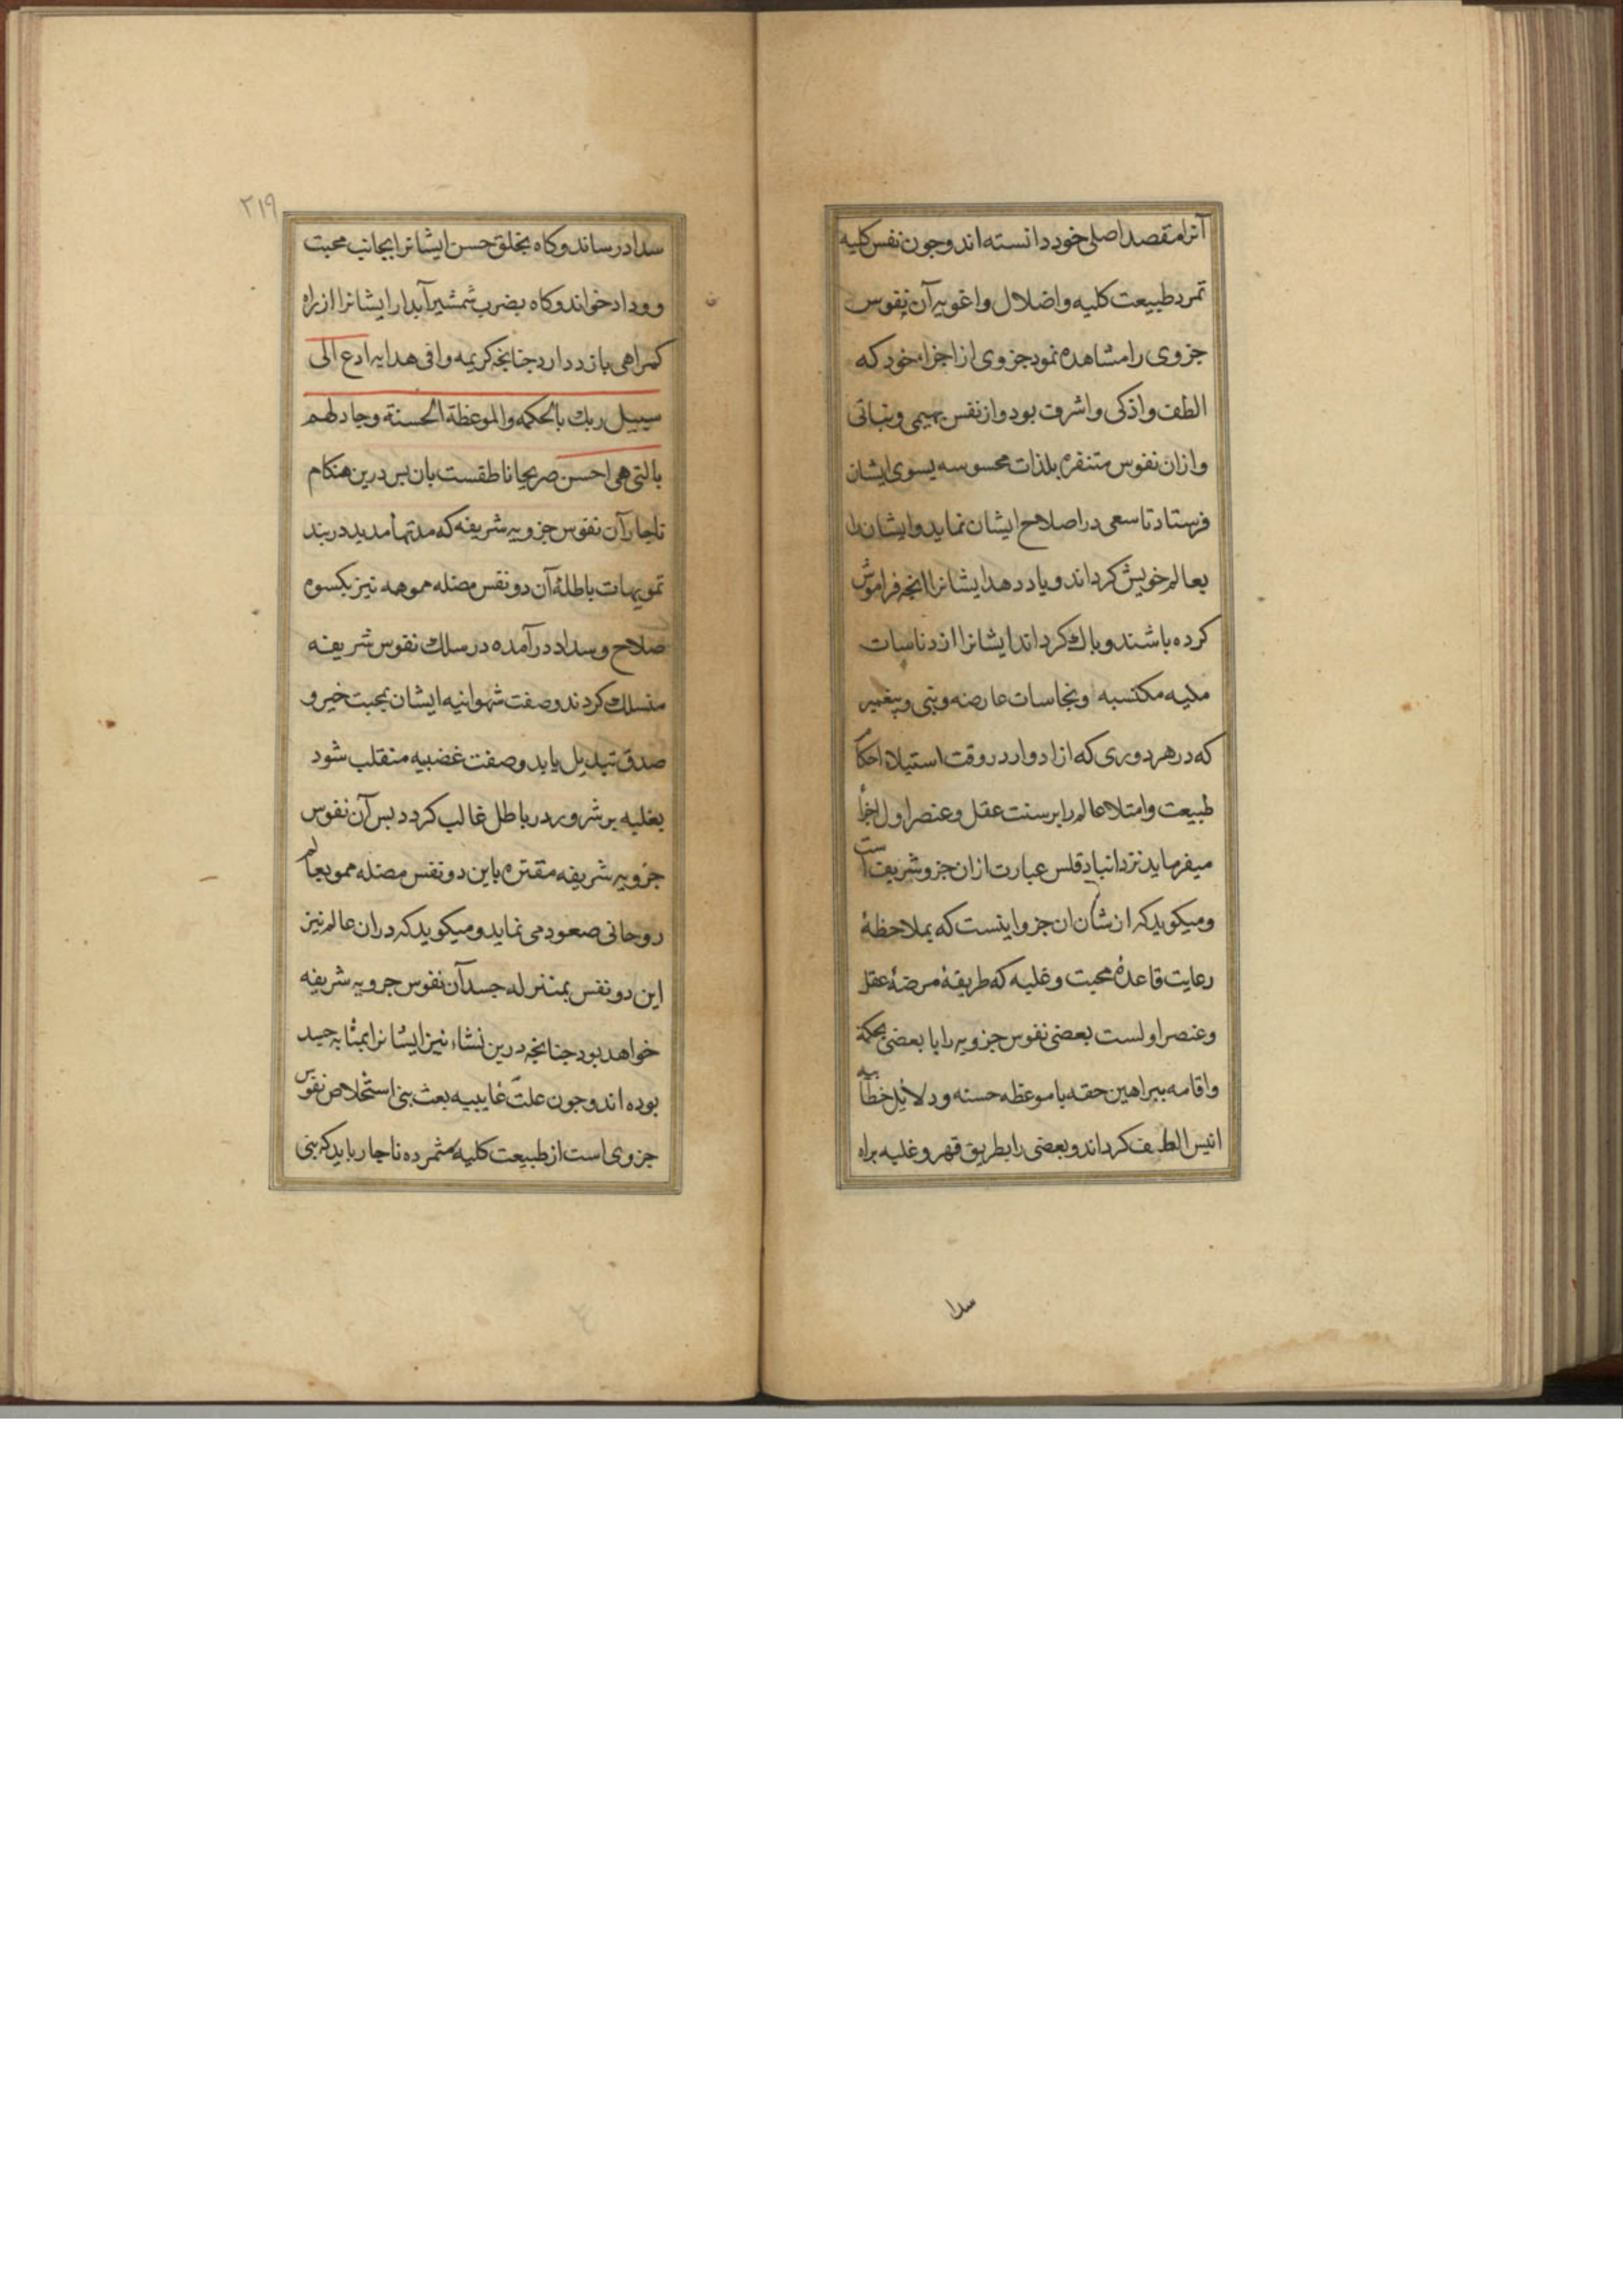 آنرا مقصد اصلی خود دانسته اند و جون نفس کلیه
تمرد طبیعت کلیه و اضلال و اغویه آن نفوس
جزوی را مشاهده نمود جزوی از اجزاء خود که
الطف و اذکی و اشرف بود و از نفس بهیمی و نباتی
و ازان نفوس متنفره بلذات محسوسه بسوی ایشان
فرستاد تا سعی در اصلاح ایشان نماید و ایشان را
بعالم خویش کرداند و یاد دهد ایشانرا انجه فراموش
کرده باشند و باك کرداند ایشانرا از دناسات
مکتسبه و نجاسات عارضه و نبی و پیغمبر
که در هر دوری که از ادوار در وقت استیلاء احکام
طبیعت و امتلا عالم را بر سنت عقل و عنصر اول اجرا
میفرماید نزد انبادقلس عبارت ازان جزو شریفست
و میکوید که از شان ان جزو اینست که بملاحظهٔ
رعایت قاعدهٔ محبت و غلبه که طریقهٔ مرضیهٔ عقل
و عنصر اولست بعضی نفوس جزویه را با بعضی بحکمة
و اقامه ببراهین حقه با موعظه حسنه و دلایل خطابیه
انیس الطف کرداند و بعضی را بطریق قهر و غلبه براه
سدا
٢١٩
سداد رساند و کاه بخلق حسن ایشانرا بجانب محبت
و وداد خواند و کاه بضرب شمشیر آبدار ایشانرا از راه
کمراهی باز دارد جنانجه کریمه وافی هدایه ادع الی
سبیل ربك بالحکمه والموعظة الحسنة وجادلهم
بالتی هی احسن صریحا ناطقست بان بس درین هنکام
ناجار آن نفوس جزویه شریفه که مدتها مدید در بند
تمویهات باطلهٔ آن دو نفس مضله مموهه نیز بکسوه
صلاح و سداد در آمده در سلك نفوس شریفه
منسلك کردند و صفت شهوانیه ایشان بمحبت خیر و
صدق تبدیل یابد و صفت غضبیه منقلب شود
بغلبه بر شر و رد باطل غالب کردد بس آن نفوس
جزویه شریفه مقترنه باین دو نفس مضله مموه بعالم
روحانی صعود می نماید و میکوید که دران عالم نیز
این دو نفس بمنزله جسد آن نفوس جزویه شریفه
خواهد بود جنانجه درین نشاء نیز ایشانرا بمثابه جسد
بوده اند و جون علت غاییه بعث نبی استخلاص نفوس
جزوی است از طبیعت کلیه متمرده ناجار باید که نبی